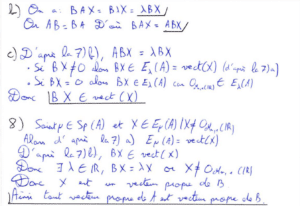 b) On a : BAX = BλX = λBX
Or AB = BA D'où BAX = ABX
c) D'après la 7) b), ABX = λBX
• Si BX ≠ 0 alors BX ∈ E_λ(A) = vect(X) (d'après la 7) a)
• Si BX = 0 alors BX ∈ E_λ(A) car 0 ∈ E_λ(A)
Donc BX ∈ vect(X)
8) Soient μ ∈ Sp(A) et X ∈ E_μ(A) | X ≠ 0
Alors d'après la 7) a) E_μ(A) = vect(X)
D'après la 7) b), BX ∈ vect(X)
Donc ∃ λ ∈ ℝ, BX = λX or X ≠ 0
Donc X est un vecteur propre de B
Ainsi tout vecteur propre de A est vecteur propre de B.